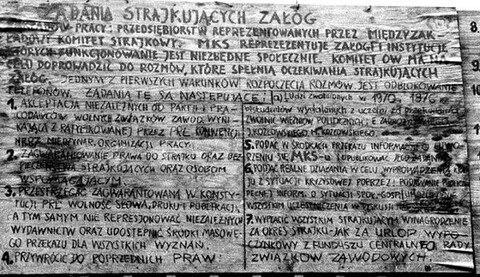 ŻĄDANIA STRAJKUJĄCYCH ZAŁÓG
PRACY I PRZEDSIĘBIORSTW REPREZENTOWANYCH PRZEZ MIĘDZYZAK
ŁADOWY KOMITET STRAJKOWY. MKS REPREZENTUJE ZAŁOGI I INSTYTUCJE
KTÓRYCH FUNKCJONOWANIE JEST NIEZBĘDNE SPOŁECZNIE. KOMITET ÓW MA NA
CELU DOPROWADZIĆ DO ROZMÓW, KTÓRE SPEŁNIĄ OCZEKIWANIA STRAJKUJĄCYCH
ZAŁÓG. JEDNYM Z PIERWSZYCH WARUNKÓW ROZPOCZĘCIA ROZMÓW JEST ODBLOKOWANIE
TELEFONÓW. ŻĄDANIA TE SĄ NASTĘPUJĄCE:
1. AKCEPTACJA NIEZALEŻNYCH OD PARTII I PRA
CODAWCÓW WOLNYCH ZWIĄZKÓW ZAWOD. WYNI
KAJĄCA Z RATYFIKOWANEJ PRZEZ PRL KONWENCJI
ORGANIZACJI PRACY.
2. ZAGWARANTOWANIE PRAWA DO STRAJKU ORAZ BEZ
PIECZEŃSTWA STRAJKUJĄCYCH ORAZ OSOBOM
WSPOMAGAJĄCYM
3. PRZESTRZEGAĆ ZAGWARANTOWANĄ W KONSTY
TUCJI PRL WOLNOŚĆ SŁOWA, DRUKU I PUBLIKACJI
A TYM SAMYM NIE REPRESJONOWAĆ NIEZALEŻNYCH
WYDAWNICTW ORAZ UDOSTĘPNIĆ ŚRODKI MASOWE
GO PRZEKAZU DLA WSZYSTKICH WYZNAŃ.
4. PRZYWRÓCIĆ DO POPRZEDNICH PRAW:
a) LUDZI ZWOLNIONYCH W 1970 I 1976
STUDENTÓW WYDALONYCH Z UCZELNI ZA PRZEKONANIA
ZWOLNIĆ WIĘŹNIÓW POLITYCZNYCH: E. ZADROŻYŃSKIEGO
J. KOZŁOWSKIEGO M. KOZŁOWSKIEGO
5. PODAĆ W ŚRODKACH PRZEKAZU INFORMACJĘ O UTWO
RZENIU SIĘ MKS-U I OPUBLIKOWAĆ JEGO ŻĄDANIA
6. PODJĄĆ REALNE DZIAŁANIA W CELU WYPROWADZENIA KRA
JU Z SYTUACJI KRYZYSOWEJ POPRZEZ: PODAWANIE PUBLICZ
NIE INFORM. O SYTUACJI SPOŁ-GOSP. UMOŻLIWIENIE
WSZYSTKIM UCZESTNICZENIA W DYSKUSJI
7. WYPŁACIĆ WSZYSTKIM STRAJKUJĄCYM WYNAGRODZENIE
ZA OKRES STRAJKU - JAK ZA URLOP WYPO
CZYNKOWY Z FUNDUSZU CENTRALNEJ RADY
ZWIĄZKÓW ZAWODOWYCH.
8.
9.